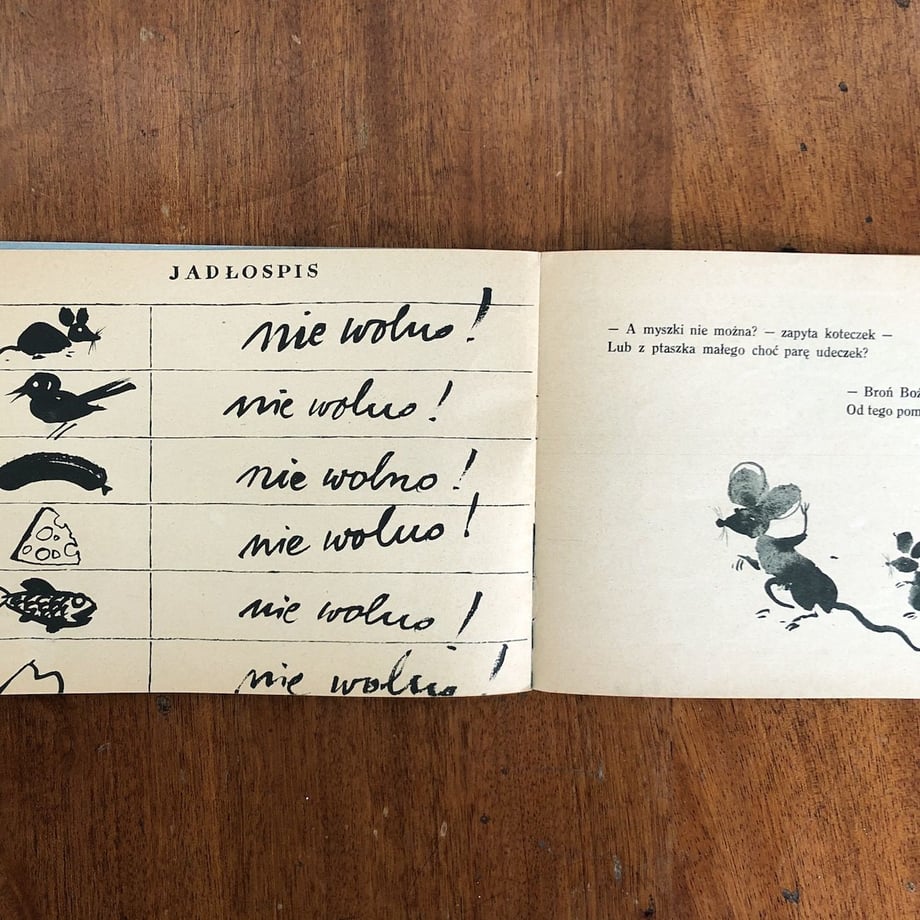 JADŁOSPIS
nie wolno!
nie wolno!
nie wolno!
nie wolno!
nie wolno!
nie wolno!
— A myszki nie można? — zapyta koteczek —
Lub z ptaszka małego choć parę udeczek?
— Broń
Od tego